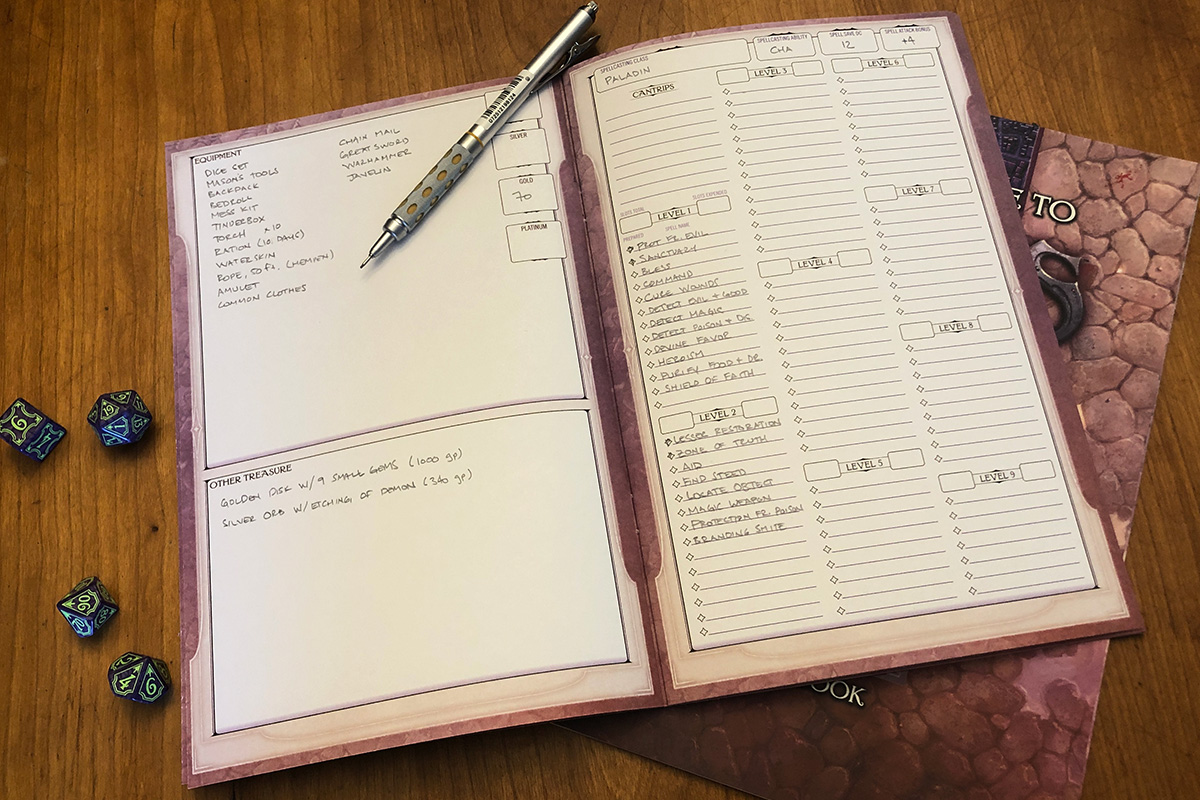 EQUIPMENT
DICE SET
MASON'S TOOLS
BACKPACK
BEDROLL
MESS KIT
TINDERBOX
TORCH x10
RATION (10 DAYS)
WATERSKIN
ROPE, 50 FT. (HEMPEN)
AMULET
COMMON CLOTHES
CHAIN MAIL
GREATSWORD
WARHAMMER
JAVELIN
SILVER
GOLD
70
PLATINUM
OTHER TREASURE
GOLDEN DISK W/ 9 SMALL GEMS (1000 gp)
SILVER ORB W/ETCHING OF DEMON (340 gp)
SPELLCASTING CLASS
PALADIN
SPELLCASTING ABILITY
CHA
SPELL SAVE DC
12
SPELL ATTACK BONUS
+4
CANTRIPS
SLOTS TOTAL
SLOTS EXPENDED
LEVEL 1
PREPARED
SPELL NAME
PROT FR. EVIL
SANCTUARY
BLESS
COMMAND
CURE WOUNDS
DETECT EVIL + GOOD
DETECT MAGIC
DETECT POISON + DIS.
DEVINE FAVOR
HEROISM
PURIFY FOOD + DR.
SHIELD OF FAITH
LEVEL 2
LESSER RESTORATION
ZONE OF TRUTH
AID
FIND STEED
LOCATE OBJECT
MAGIC WEAPON
PROTECTION FR. POISON
BRANDING SMITE
LEVEL 3
LEVEL 4
LEVEL 5
LEVEL 6
LEVEL 7
LEVEL 8
LEVEL 9
TO
OOK